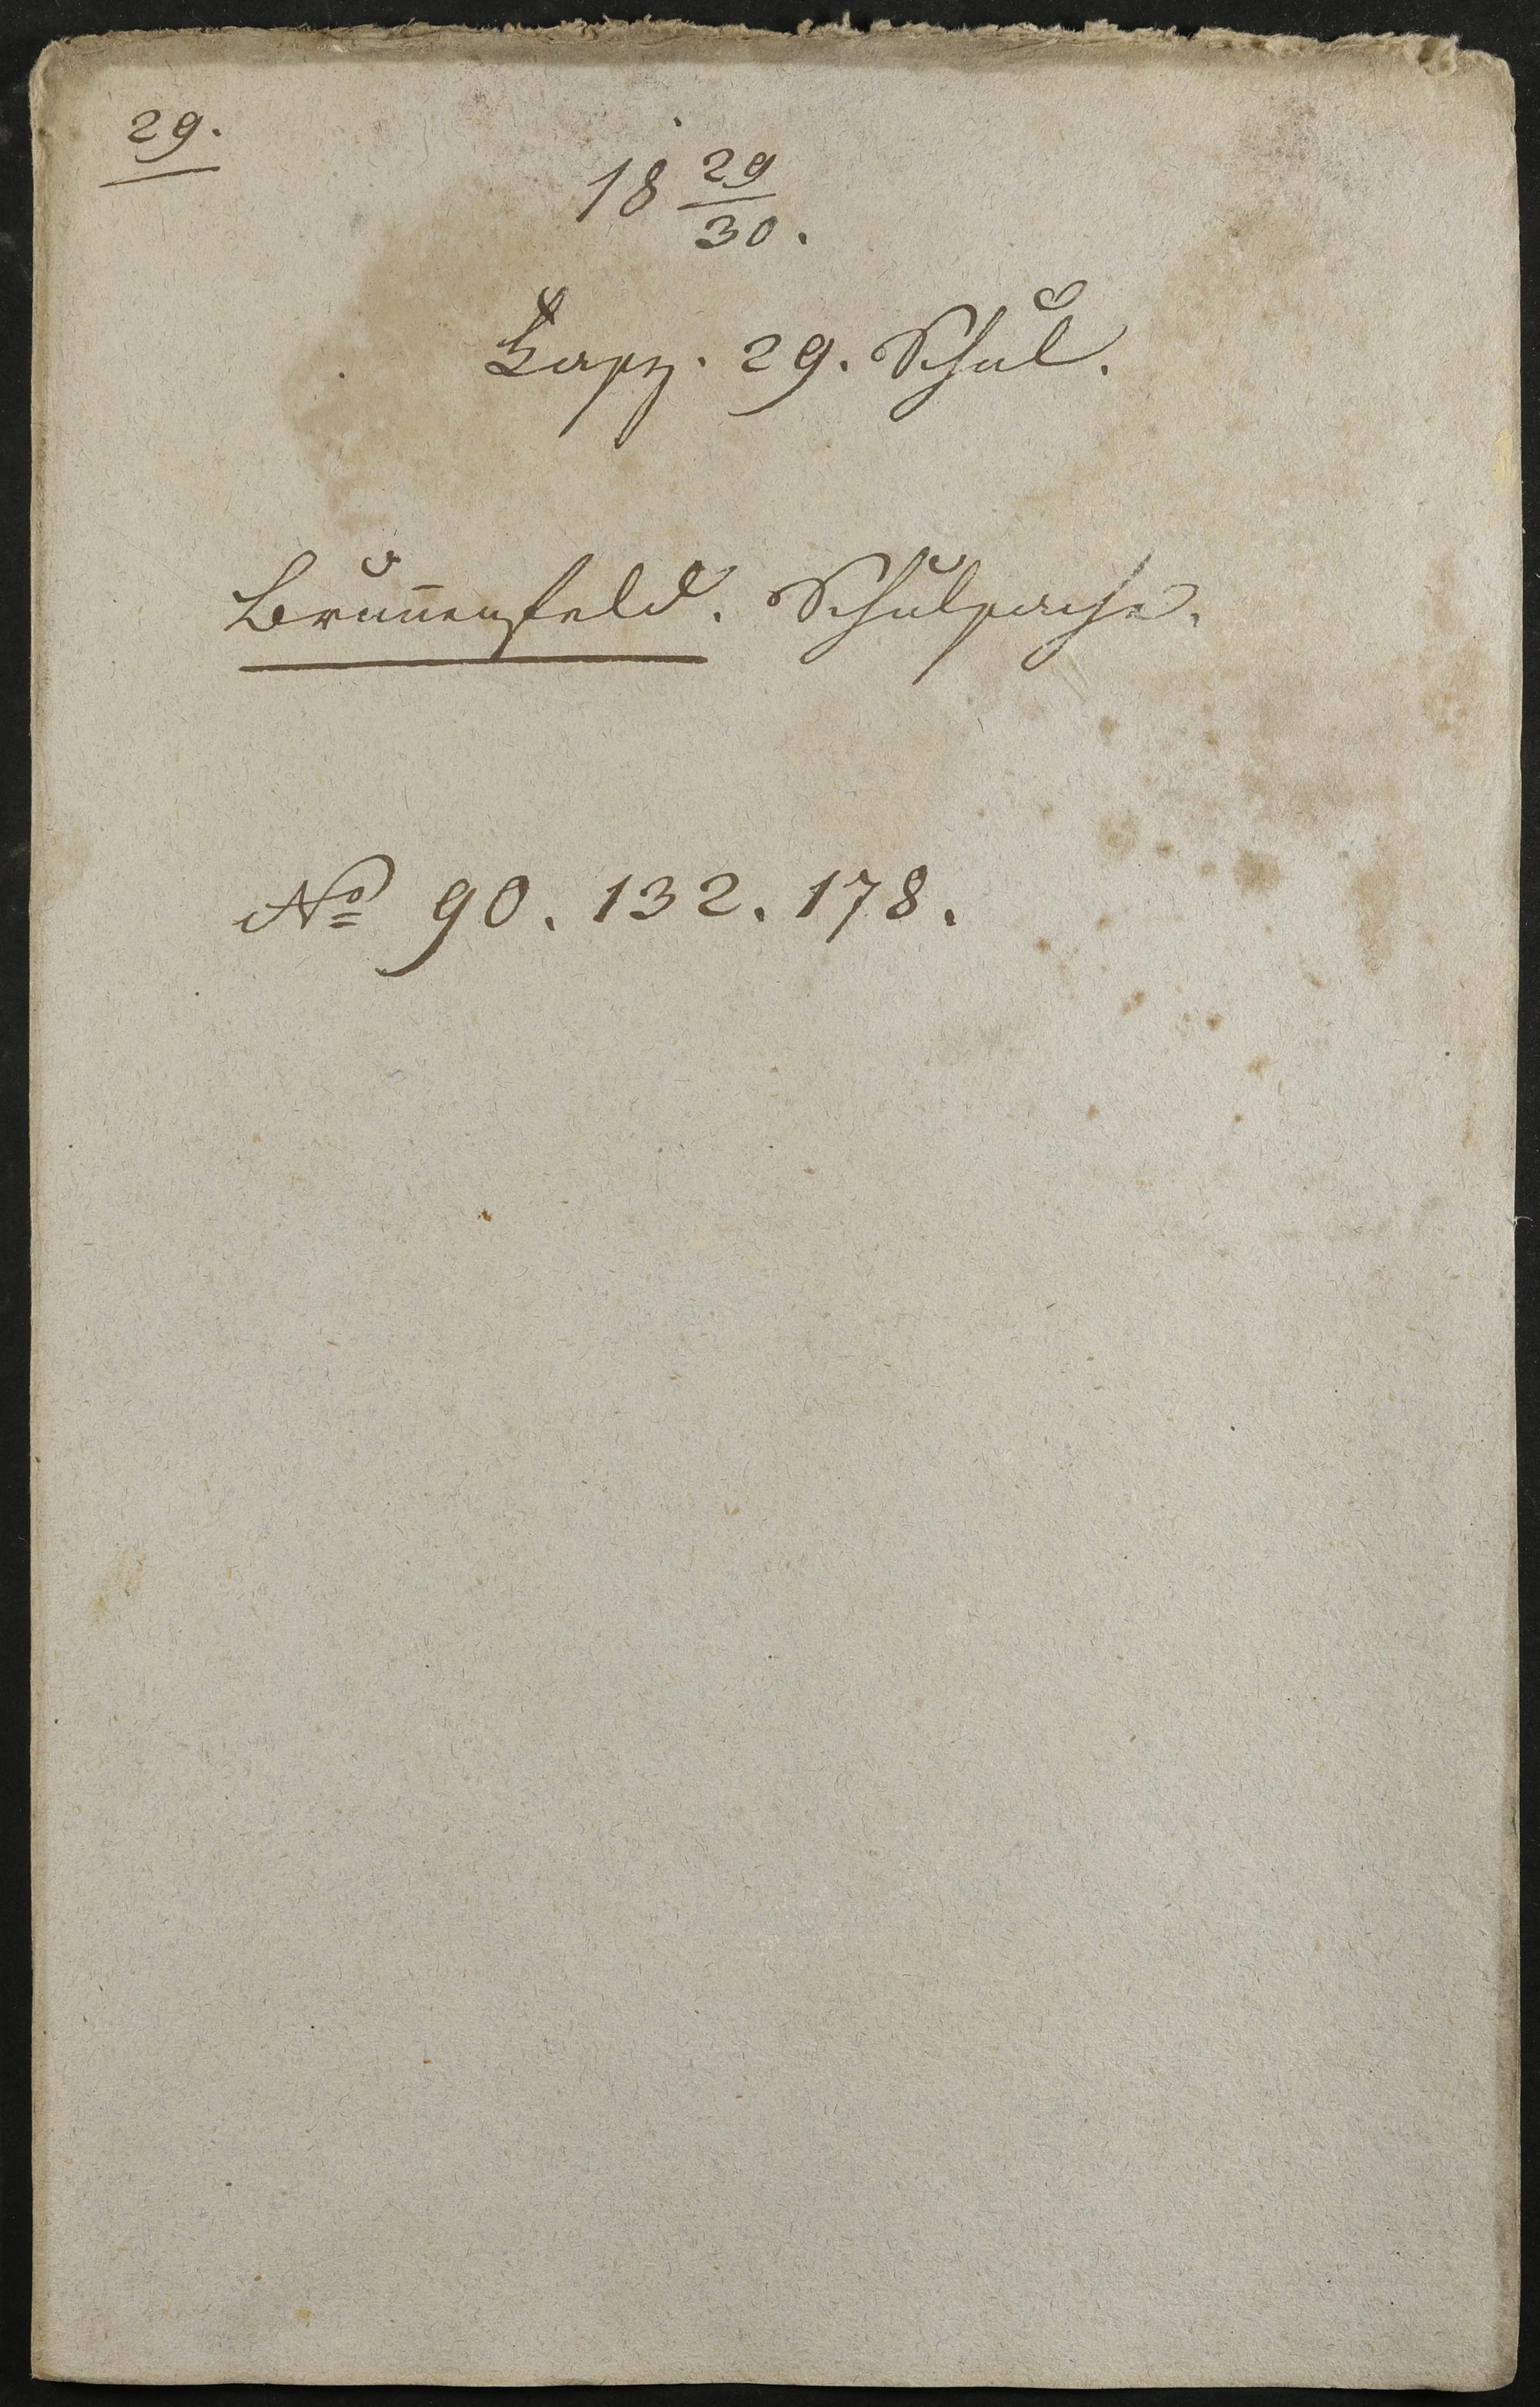 29.
18 29/30.
Fasz. 29. Schul.
Brun̄enfeld. Schulsache.
No 90. 132. 178.